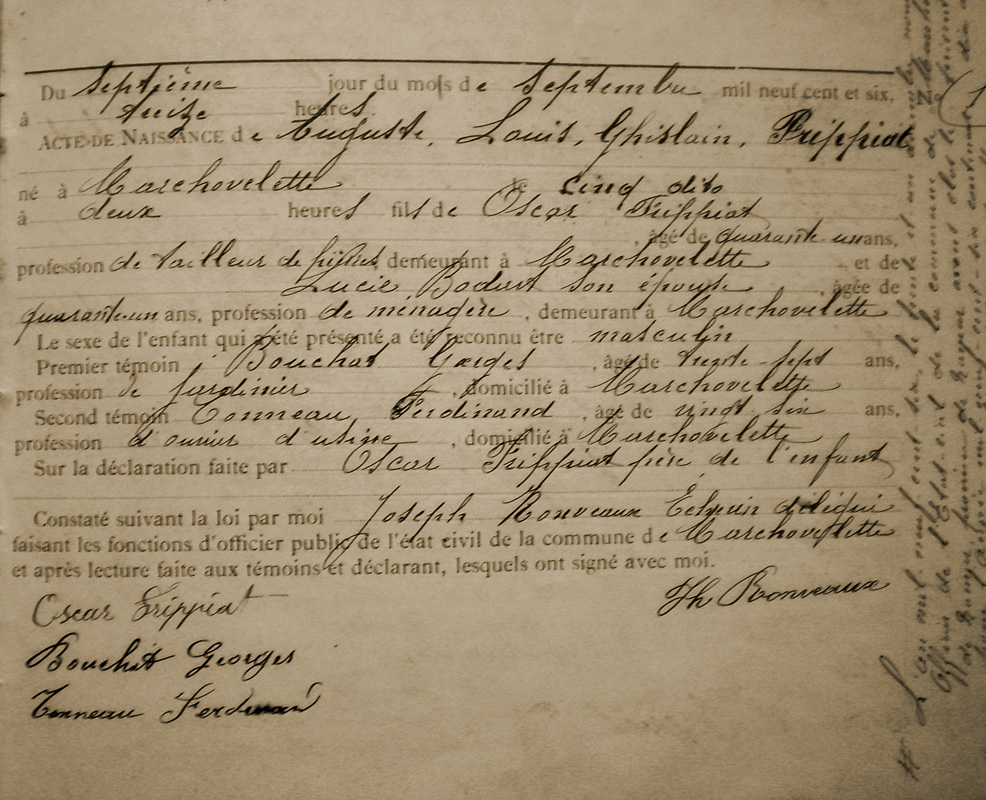 Du Septième jour du mois de Septembre mil neuf cent et six, No (1
à treize heures
ACTE DE NAISSANCE de Auguste, Louis, Ghislain, Frippiat
né à Marchovelette le cinq dito
à deux heures fils de Oscar Frippiat
, âgé de quarante un ans,
profession de tailleur de pierres demeurant à Marchovelette et de
Lucie Bodart son épouse , âgée de
quarante-un ans, profession de ménagère , demeurant à Marchovelette
Le sexe de l'enfant qui a été présenté a été reconnu être masculin
Premier témoin Bouchat Georges , âgé de trente-sept ans,
profession de jardinier , domicilié à Marchovelette
Second témoin Tonneau Ferdinand , âgé de vingt six ans,
profession d'ouvrier d'usine , domicilié à Marchovelette
Sur la déclaration faite par Oscar Frippiat père de l'enfant
Constaté suivant la loi par moi Joseph Ronveaux Echevin délégué
faisant les fonctions d'officier public de l'état civil de la commune de Marchovelette
et après lecture faite aux témoins et déclarant, lesquels ont signé avec moi.
Oscar Frippiat
Jh Ronveaux
Bouchat Georges
Tonneau Ferdinand